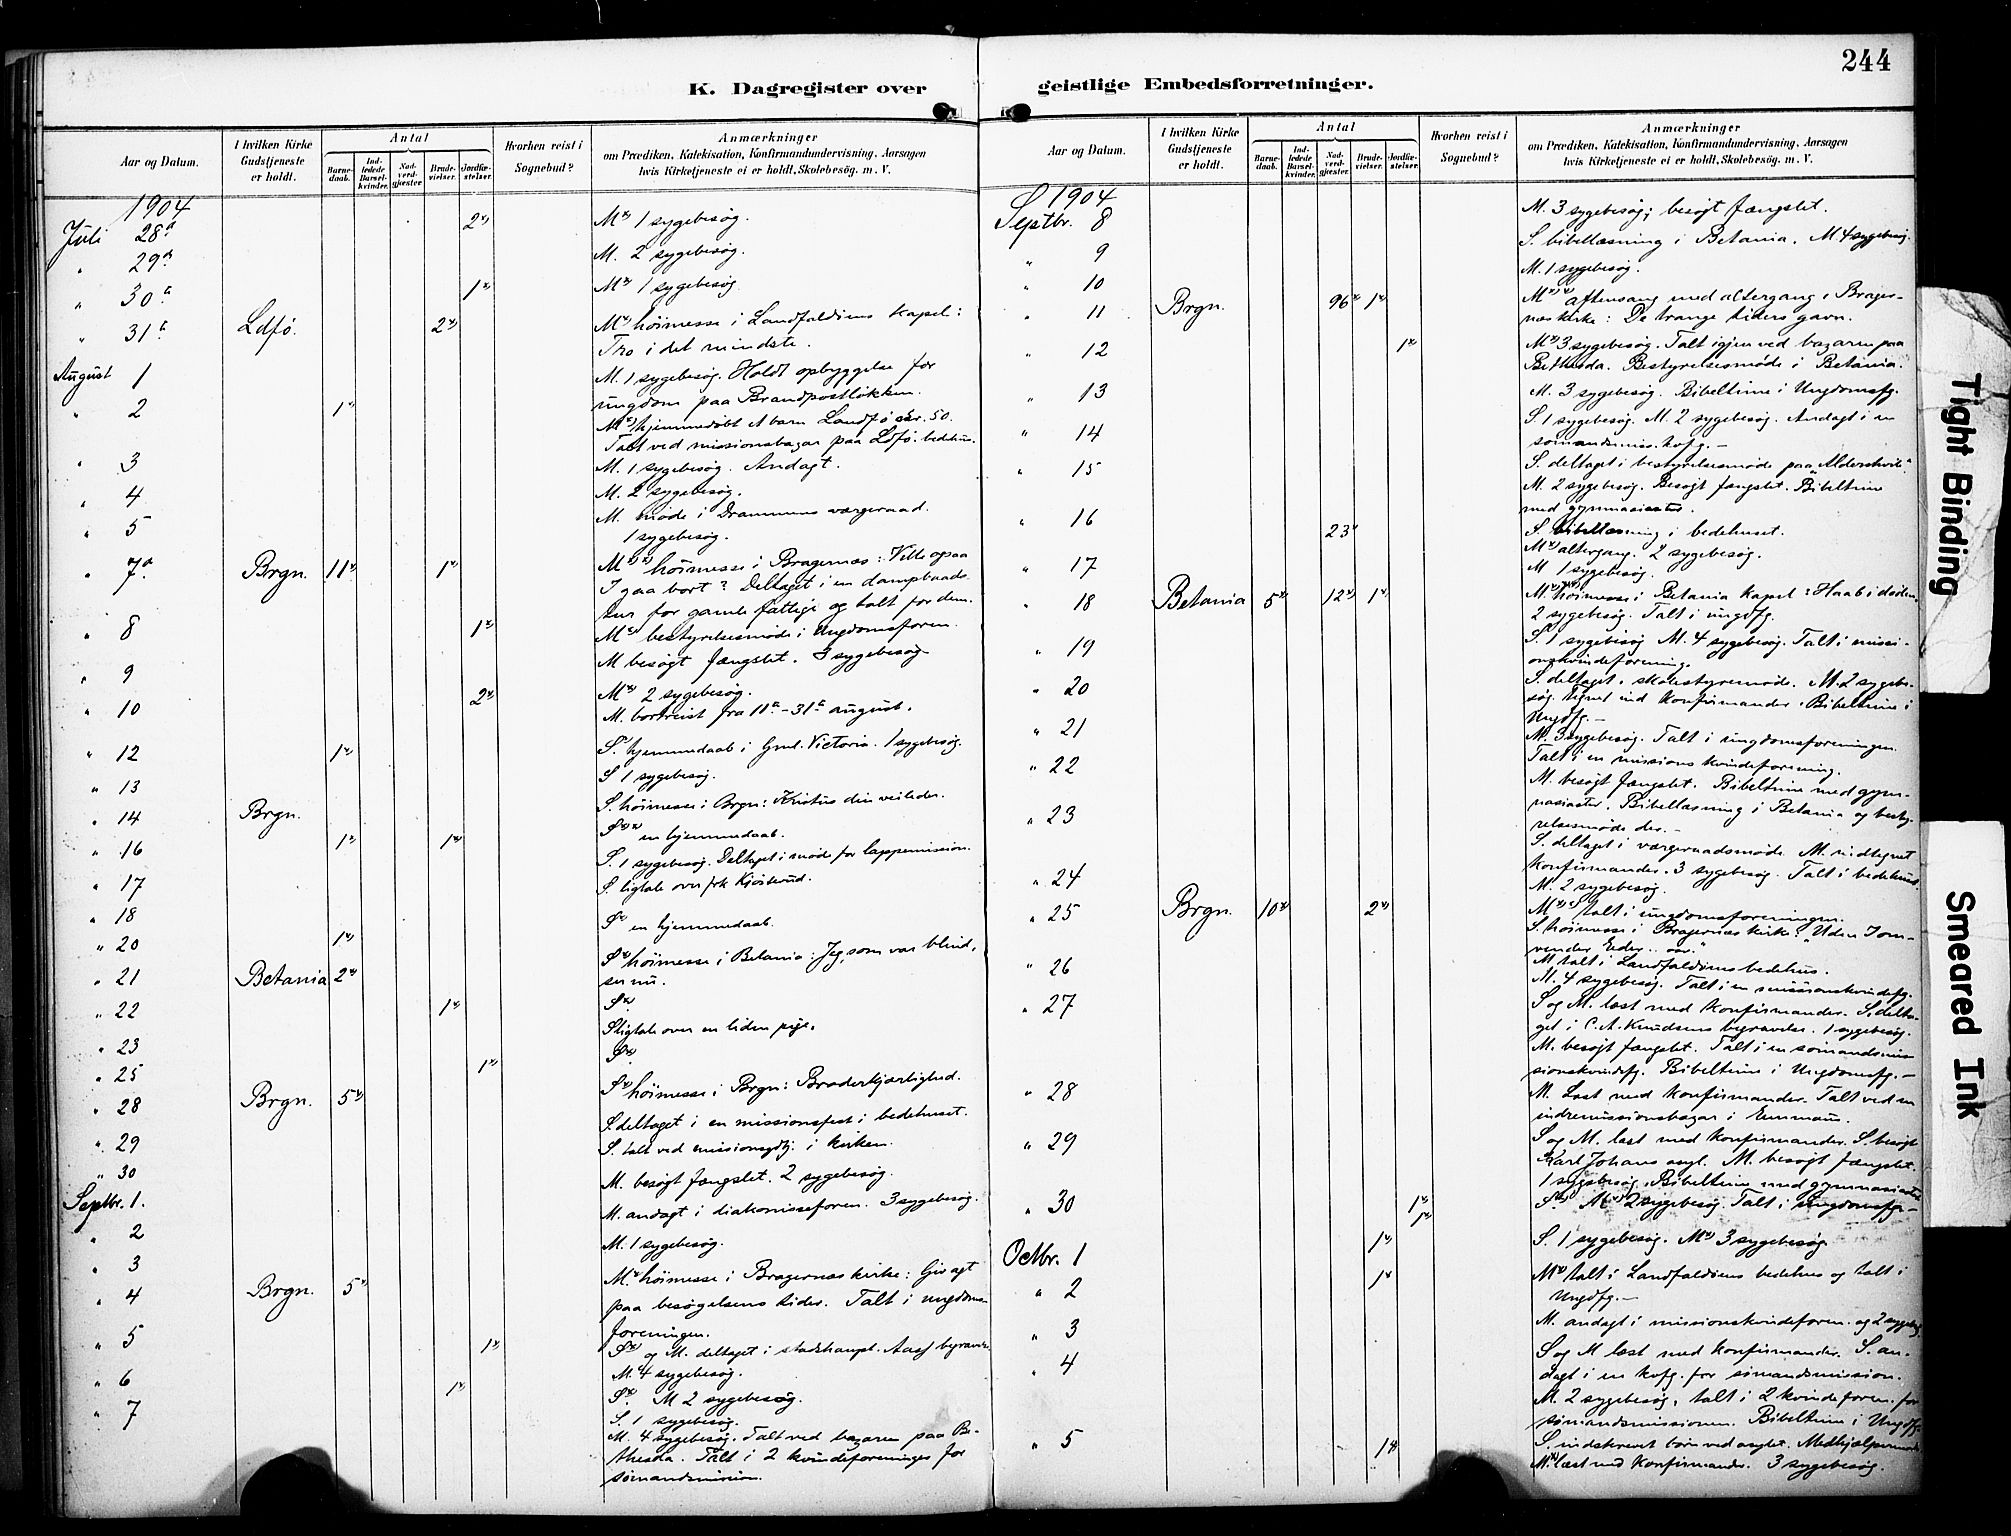 244
K. Dagregister over geistlige Embedsforretninger.
Aar og Datum.
I hvilken Kirke Gudstjeneste er holdt.
Antal
Barne-daab.
Ind-ledede Barsel-kvinder.
Nad-verd-gjæster
Brude-vielser.
Jordfæ-stelser.
Hvorhen reist i Sognebud?
Anmærkninger
om Prædiken, Katekisation, Konfirmandundervisning, Aarsagen
hvis Kirketjeneste ei er holdt, Skolebesög. m. V.
1904
Juli 28de 2x) Mx) 1 sygebesøg.
" 29de M. 2 sygebesøg.
" 30te 1x) Mx) 1 sygebesøg
" 31te Ldfø. 2x) Mx) høimesse i Landfaldøens kapel:
Tro i det mindste.
August 1 M. 1 sygebesøg. Holdt opbyggelse for
ungdom paa Brandpostløkken.
" 2 1x) Mx) hjemmedøbt 1 barn Landfø
Talt ved missionsbazar paa Ldfø. bedehus.
" 3 M. 1 sygebesøg. Andagt.
" 4 M. 2 sygebesøg.
" 5 M. møde i Drammens værgeraad.
1 sygebesøg.
" 7de Brgn. 11x) 1x) høimesse i Bragernæs: Ville ogsaa
I gaa bort? Deltaget i en dampbaads-
tur for gamle fattige og talt for dem.
" 8 1x) Mx) bestyrelsesmøde i Ungdomsforen.
" 9 M besøgt fængslet. 3 sygebesøg
" 10 2x) Mx) 2 sygebesøg.
M. bortreist fra 11te-31te august.
" 12 1x) S. hjemmedaab i Grnl. Victoria. 1 sygebesøg.
" 13 S 1 sygebesøg.
" 14 Brgn. S. høimesse i Brgn: Kristus din veileder.
" 16 1x) 1x) en hjemmedaab.
" 17 S. 1 sygebesøg. Deltaget i møde for lappemission.
" 18 S. ligtale over frk Kjøsterud.
" 20 1x) Sx) en hjemmedaab.
" 21 Betania 2x) Sx) høimesse i Betania: Jeg, som var blind,
ser nu.
" 22 1x) Sx)
" 23 S ligtale over en liden pige.
" 25 1x) Sx)
" 28 Brgn. 5x) Sx) høimesse i Brgn: Broderkjærlighed.
" 29 S. deltaget i en missionsfest i bedehuset.
" 30 S. talt ved missionsgdtj. i kirken.
Septbr. 1. M. besøgt fængslet. 2 sygebesøg.
" 2 M. andagt i diakonisseforen. 3 sygebesøg.
" 3 M. 1 sygebesøg.
" 4 Brgn. 5x) Mx) høimesse i Bragernæs kirke: Giv agt
paa besøgelsens tider. Talt i ungdoms-
foreningen.
" 5 1x) Sx) og M. deltaget i stadshaupt. Aass begravelse.
M. 4 sygebesøg.
" 6 1x) Sx) M 2 sygebesøg.
" 7 S. 1 sygebesøg.
M. 4 sygebesøg. Talt ved bazaren paa Be-
thesda. Talt i 2 kvindeforeninger for
sømandsmission.
Aar og Datum.
I hvilken Kirke Gudstjeneste er holdt.
Antal
Barne-daab.
Ind-ledede Barsel-kvinder.
Nad-verd-gjæster
Brude-vielser.
Jordfæ-stelser.
Hvorhen reist i Sognebud?
Anmærkninger
om Prædiken, Katekisation, Konfirmandundervisning, Aarsagen
hvis Kirketjeneste ei er holdt, Skolebesög. m. V.
1904
Septbr. 8 M. 3 sygebesøg; besøgt fængslet.
S. bibellæsning i Betania. M 4 sygebesøg.
" 9 M. 1 sygebesøg.
" 10
" 11 Brgn. 96x) 1x) aftensang med altergang i Brager-
næs kirke: De trange tiders gavn.
" 12 1x) Mx) 3 sygebesøg. Talt igjen ved bazaren paa
Bethesda. Bestyrelsesmøde i Betania.
" 13 M. 3 sygebesøg. Bibeltime i Ungdomsfg.
S. 1 sygebesøg. M. 2 sygebesøg. Andagt i en
" 14 sømandsmiss. kvfg.
" 15 S. deltaget i bestyrelsesmøde paa "Aldershvile".
M. 2 sygebesøg. Besøgt fængslet. Bibeltime
med gymnasiaster.
" 16 23x) S. bibellæsning i bedehuset.
Mx) altergang. 2 sygebesøg.
" 17 M 1 sygebesøg.
" 18 Betania 5x) 12x) 1x) høimesse i Betania kapel: Haab i døden.
2 sygebesøg. Talt i ungdfg.
" 19 S. 1 sygebesøg M. 4 sygebesøg. Talt i missi-
onskvindeforening.
" 20 S. deltaget i skolestyremøde. M. 2 sygebe-
søg. Tegnet ind konfirmander. Bibeltime i
Ungdfg.
" 21 M. 3 sygebesøg. Talt i ungdomsforeningen.
" 22 Talt i en missions kvindeforening.
M. besøgt fængslet. Bibeltime med gym-
nasiaster. Bibellæsning i Betania og besty-
relsesmøde der.
" 23 S. deltaget i værgeraadsmøde. M. indtegnet
konfirmander. 3 sygebesøg. Talt i bedehuset.
" 24 M. 2 sygebesøg.
" 25 Brgn. 10x) 2x) talt i ungdomsforeningen.
S. høimesse i Bragernæs kirke: "Uden I om-
vender Eder
M talt i Landfaldøens bedehus.
" 26 M. 4 sygebesøg. Talt i en missionskvindefg.
" 27 S og M. læst med konfirmander. S. delta-
get i C. A. Knudsens begravelse. 1 sygebesøg.
M. besøgt fængslet. Talt i en sømandsmis-
sionskvindefg. Bibeltime i Ungdomsfg.
" 28 M. Læst med konfirmander. Talt ved en
indremissionsbazar i Emmaus.
" 29 S og M. læst med konfirmander. S. besøgt
Karl Johans asyl. M. besøgt fængslet.
1 sygebesøg. Bibeltime med gymnasiaster
" 30 1x) 1x) Sx) Mx) 2 sygebesøg. Talt i Ungdomsfg.
Octbr. 1 1x) S. 1 sygebesøg. Mx) 3 sygebesøg
" 2 1x) Mx) talt i Landfaldøens bedehus og talt i
Ungdfg.
" 3 M. andagt i missionskvindeforen. og 2 sygebesøg
" 4 S og M læst med konfirmander. S. an-
dagt i en kvfg. for sømandsmission.
M. 2 sygebesøg, talt i 2 kvindeforen. for
sømandsmissionen. Bibeltime i Ungdfg.
" 5 1x) S. indskrevet børn ved asylet.
Mx) læst med konfirmander. 3 sygebesøg.
Tight Binding
Smeared Ink